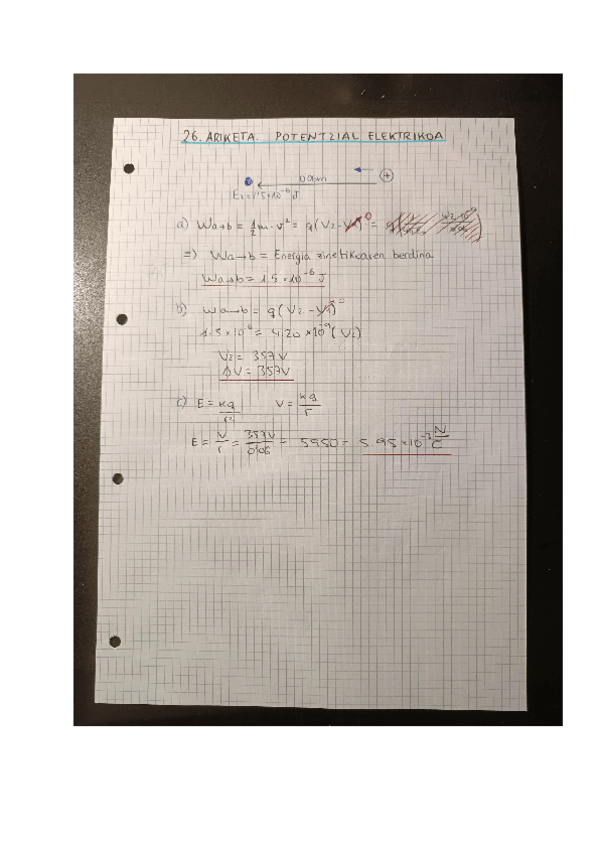 26. ARIKETA. POTENTZIAL ELEKTRIKOA
0'06m
+
E₁=1'5×10⁻⁶J
a) Wa→b = 1/2 m·v² = q(V₂-V₁)⁰ =
=) Wa→b = Energia zinetikoaren berdina
Wa→b = 1.5×10⁻⁶ J
b) Wa→b = q(V₂-V₁)
1.5×10⁻⁶ = 4.20×10⁻⁹(V₂)
V₂ = 357V
ΔV = 357V
c) E = kq/r² V = kq/r
E = V/r = 357V/0'06 = 5950 = 5.95×10⁻³ N/C